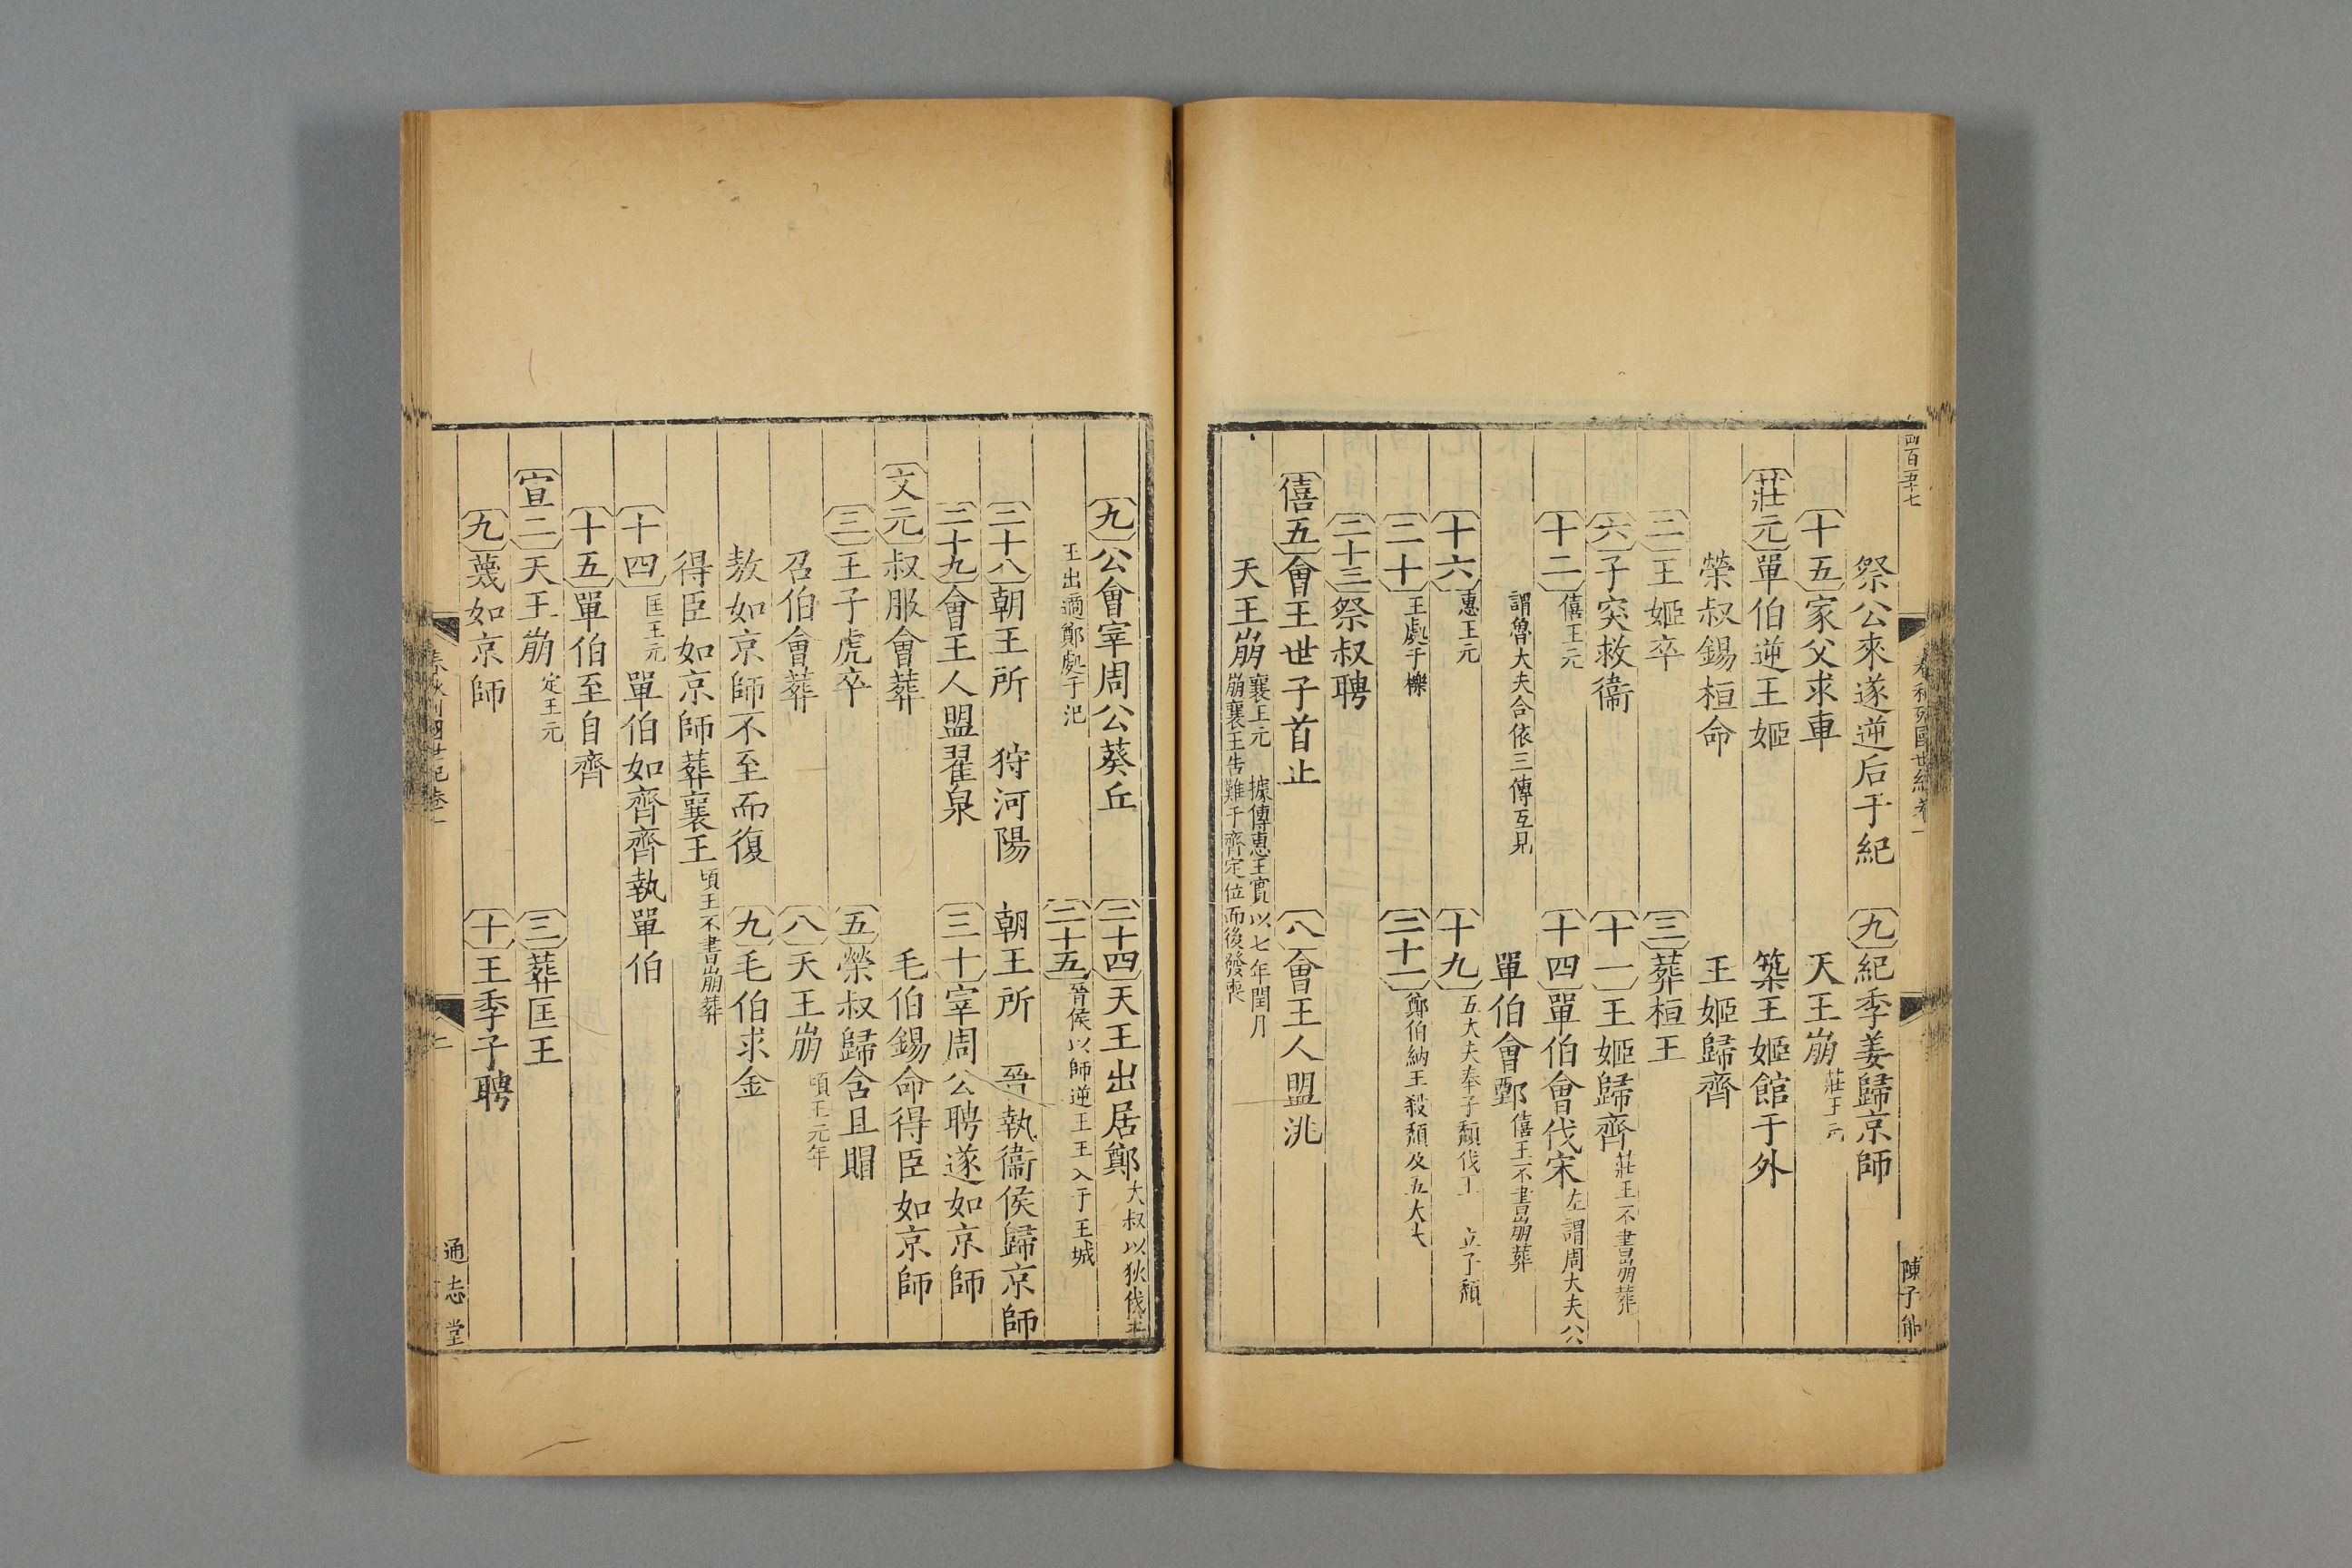 四百五十七
春秋列國世紀卷一
陳子能
祭公來遂逆后于紀　九紀季姜歸京師
十五家父求車　天王崩莊王元
莊元單伯逆王姬　築王姬館于外
榮叔錫桓命　王姬歸齊
二王姬卒　三葬桓王
六子突救衞　十一王姬歸齊莊王不書崩葬
十二僖王元　十四單伯會伐宋左謂周大夫公
謂魯大夫合依三傳互見　單伯會鄄僖王不書崩葬
十六惠王元　十九五大夫奉子頹伐王　立子頹
二十王處于櫟　二十一鄭伯納王殺頹及五大夫
二十三祭叔聘
僖五會王世子首止　八會王人盟洮
天王崩襄王元　據傳惠王實以七年閏月
崩襄王告難于齊定位而後發喪
九公會宰周公葵丘　二十四天王出居鄭大叔以狄伐王
王出適鄭處于氾　二十五晉侯以師逆王王入于王城
二十八朝王所　狩河陽　朝王所　晉執衞侯歸京師
二十九會王人盟翟泉　三十宰周公聘遂如京師
文元叔服會葬　毛伯錫命得臣如京師
三王子虎卒　五榮叔歸含且賵
召伯會葬　八天王崩頃王元年
敖如京師不至而復　九毛伯求金
得臣如京師葬襄王頃王不書崩葬
十四匡王元單伯如齊齊執單伯
十五單伯至自齊
宣二天王崩定王元　三葬匡王
九蔑如京師　十王季子聘
春秋列國世紀卷一
二
通志堂